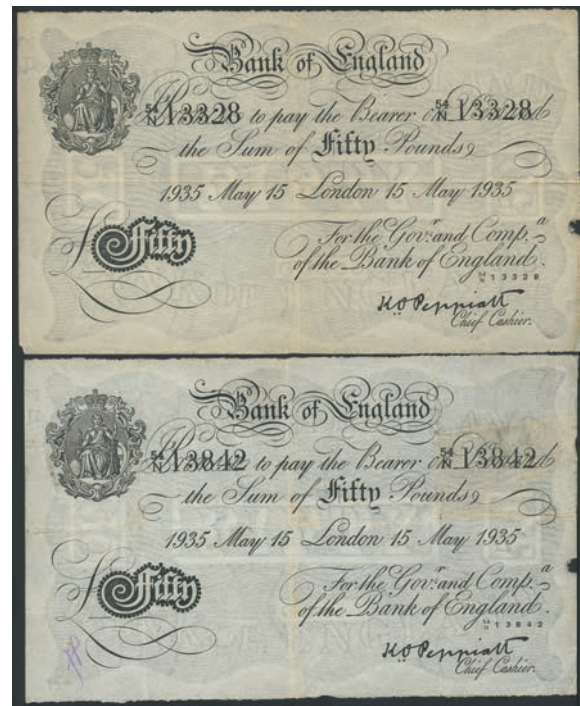 Bank of England
54/N 13328 to pay the Bearer on 54/N 13328
the Sum of Fifty Pounds
1935 May 15 London 15 May 1935
£ Fifty
For the Govr. and Compa.
of the Bank of England.
54/N 13328
K.O. Peppiatt
Chief Cashier.
Bank of England
54/N 13842 to pay the Bearer on 54/N 13842
the Sum of Fifty Pounds
1935 May 15 London 15 May 1935
£ Fifty
For the Govr. and Compa.
of the Bank of England.
54/N 13842
K.O. Peppiatt
Chief Cashier.